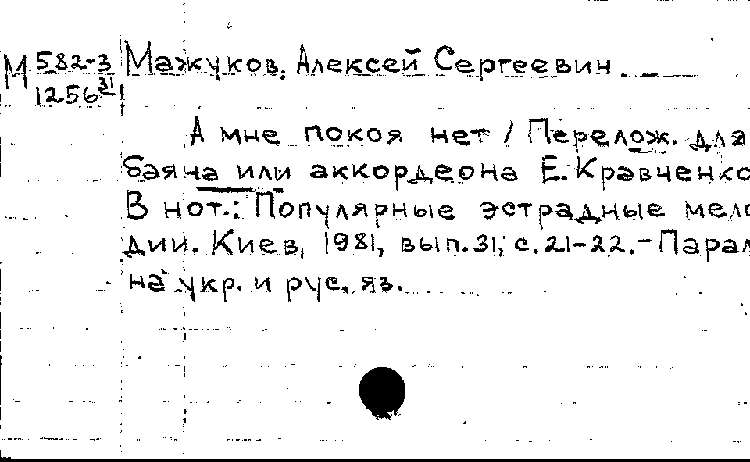 М 582-3 Мажуков, Алексей Сергеевич.
1256 31
А мне покоя нет / Перелож. для
баяна или аккордеона Е. Кравченко
В нот.: Популярные эстрадные мело
дии. Киев, 1981, вып. 31, с. 21-22. - Парал
на укр. и рус. яз.